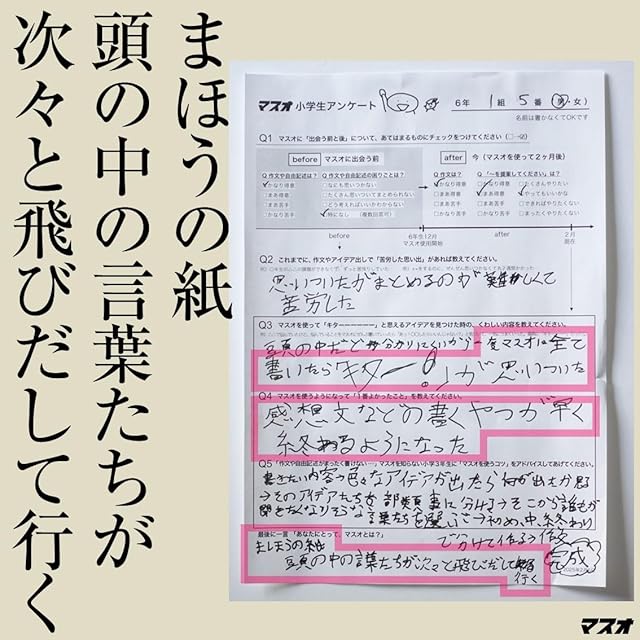 まほうの紙
頭の中の言葉たちが
次々と飛びだして行く
マスオ 小学生アンケート
6年 1組 5番 (男・女)
名前は書かなくてOKです
Q1 マスオに「出会う前と後」について、あてはまるものにチェックをつけてください
before マスオに出会う前
after 今(マスオを使って2ヶ月後)
Q 作文や自由記述は?
かなり得意
まあ得意
まあ苦手
かなり苦手
Q 作文や自由記述の困りごとは?
なにも思いつかない
たくさん思いついてまとめられない
どう考えればいいかわからない
特になし (複数回答可)
Q 作文は?
かなり得意
まあ得意
まあ苦手
かなり苦手
Q 「〜を提案してください」は?
かなり得意
まあ得意
まあ苦手
かなり苦手
たくさんやりたい
やってもいいかな
できればやりたくない
まったくやりたくない
before
6年生12月
マスオ使用開始
after
2月
現在
Q2 これまでに、作文やアイデア出しで「苦労した思い出」があれば教えてください。
思いついたがまとめるのが難しくて
苦労した
Q3 マスオを使って「キターーーーー」と思えるアイデアを見つけた時の、くわしい内容を教えてください。
頭の中だと分かりにくいから一度マスオに全て
書いたら「キター!」が思いついた
Q4 マスオを使うようになって「1番よかったこと」を教えてください。
感想文などの書くやつが早く
終わるようになった
Q5 「作文や自由記述がまったく書けない…」マスオを知らない小学3年生に「マスオを使うコツ」をアドバイスしてあげてください。
書きたい内容の色々なアイデアが出たら
→そのアイデアたちを部類事に分ける→そこから誰もが
聞きたくなりそうな言葉たちを選ぶ→初め、中、終わり
で分けて作ろう
完成
最後に一言「あなたにとって、マスオとは?」
まほうの紙
頭の中の言葉たちが次々と飛びだして
行く
マスオ